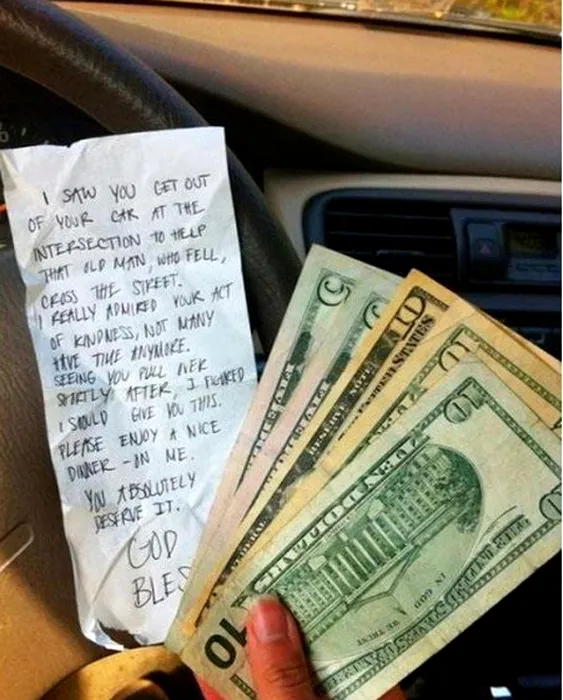 I SAW YOU GET OUT
OF YOUR CAR AT THE
INTERSECTION TO HELP
THAT OLD MAN, WHO FELL,
CROSS THE STREET.
I REALLY ADMIRED YOUR ACT
OF KINDNESS, NOT MANY
HAVE TIME ANYMORE.
SEEING YOU PULL OVER
SHORTLY AFTER, I FIGURED
I SHOULD GIVE YOU THIS.
PLEASE ENJOY A NICE
DINNER - ON ME.
YOU ABSOLUTELY
DESERVE IT.
GOD
BLES
5
5
10
10
10
IN GOD
WE TRUST
THE UNITED STATES OF